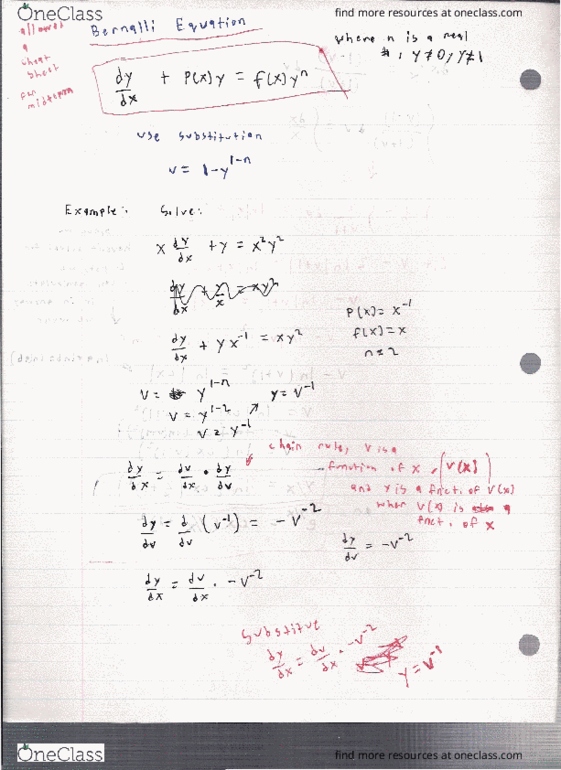 OneClass
find more resources at oneclass.com
allowed
a
cheat
sheet
for
midterm
Bernalli Equation
where n is a real
#, y≠0, y≠1
dy/dx + P(x)y = f(x)y^n
use substitution
v = 1-y^1-n
Example: Solve:
x dy/dx + y = x²y²
dy/dx + y/x = xy²
P(x) = x^-1
f(x) = x
n = 2
dy/dx + yx^-1 = xy²
v = y^1-n
y = v^-1
v = y^1-2
v = y^-1
chain rule, v is a
function of x, (v(x))
and y is a funct. of v(x)
when v(x) is a
funct. of x
dy/dx = dv/dx · dy/dv
dy/dv = d/dv (v^-1) = -v^-2
dy/dv = -v^-2
dy/dx = dv/dx · -v^-2
Substitue
dy/dx = dv/dx · -v^-2
y = v^-1
OneClass
find more resources at oneclass.com